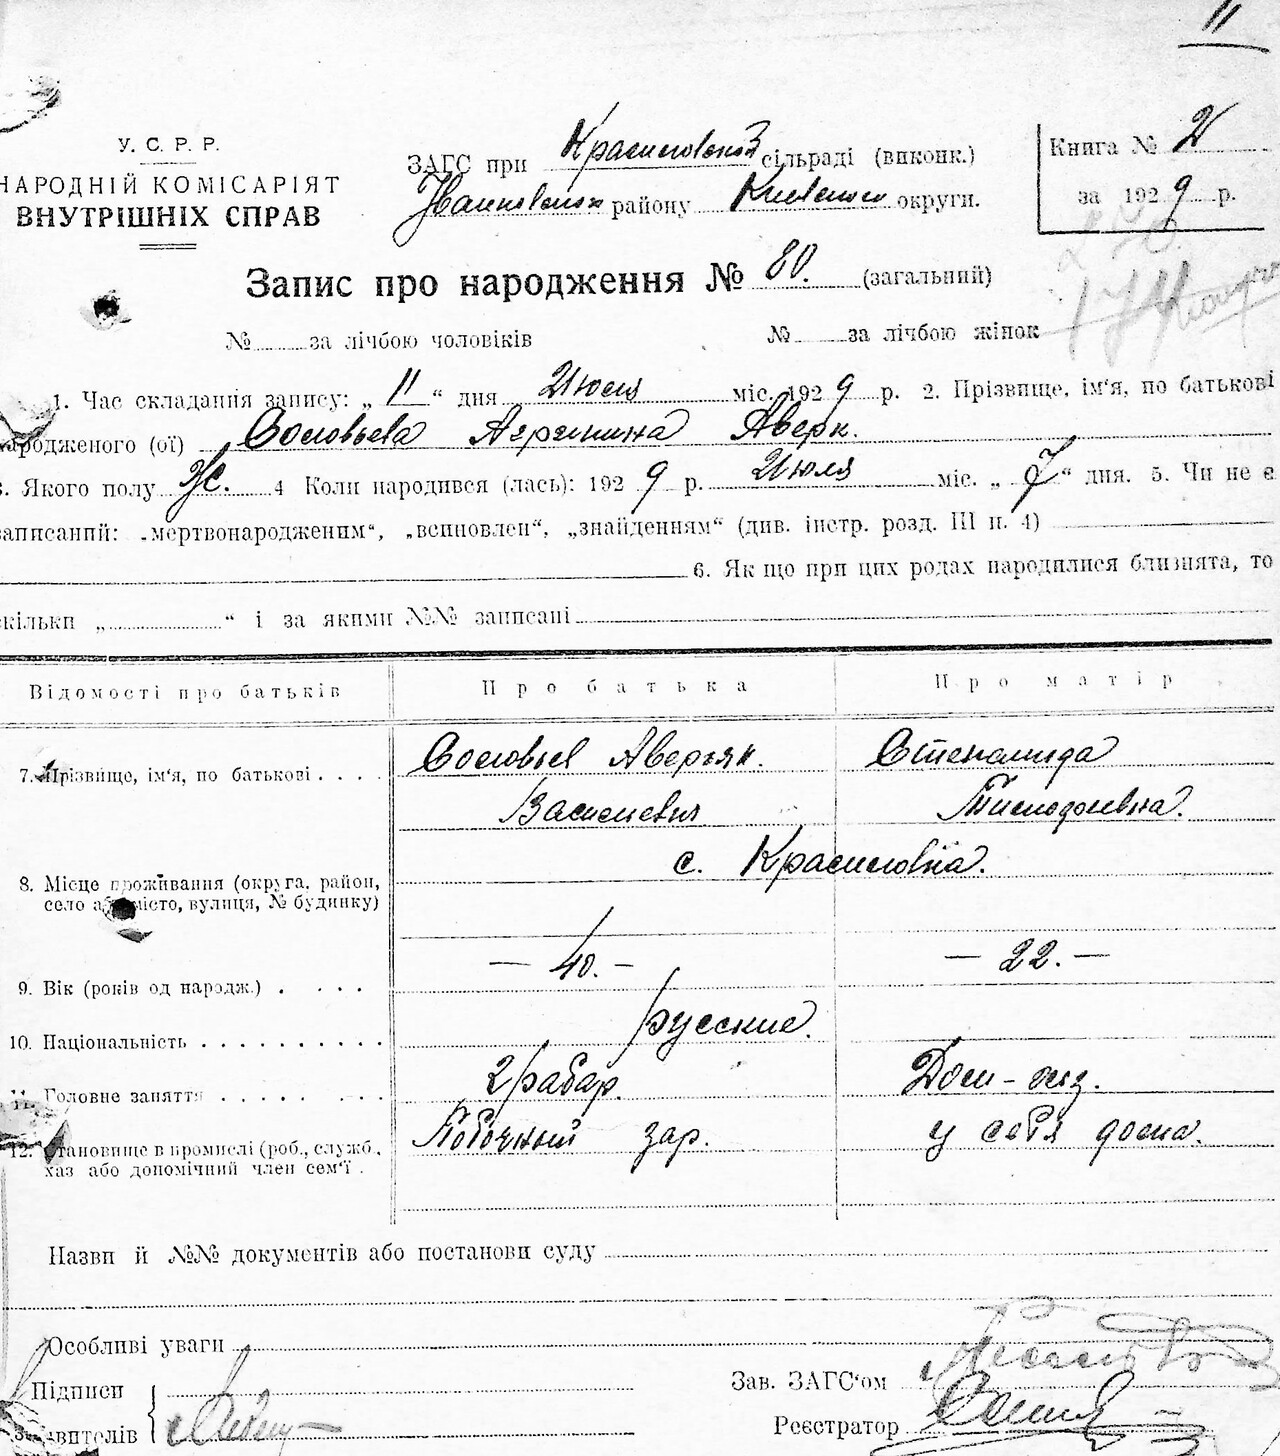 11
У. С. Р. Р.
НАРОДНІЙ КОМІСАРІЯТ
ВНУТРІШНІХ СПРАВ
ЗАГС при Красиловской сільраді (виконк.)
району Киевского округи.
Книга № 2
за 1929 р.
Запис про народження № 80. (загальний)
№ за лічбою чоловіків № за лічбою жінок
1. Час складання запису: „11“ дня Июля міс. 1929 р. 2. Прізвище, ім'я, по батькові
народженого (ої) Соловьева Агрипина Аверк.
3. Якого полу Ж. 4 Коли народився (лась): 1929 р. Июля міс. „7“ дня. 5. Чи не є
записаний: „мертвонародженим“, „всиновлен“, „знайденням“ (див. інстр. розд. III п. 4)
6. Як що при цих родах народилися близнята, то
скільки „ “ і за якими №№ записані
Відомості про батьків Про батька Про матір
7. Прізвище, ім'я, по батькові Соловьев Аверьян. Степанида
Васильевич
8. Місце проживання (округа, район, село або місто, вулиця, № будинку) с. Красиловка.
9. Вік (років од народж.) — 40. — — 22. —
10. Національність русские.
11. Головне заняття грабар. Дом-хоз.
12. Становище в промислі (роб., служб., хаз або допомічний член сем'ї. Побочный зар. у себя дома.
Назви й №№ документів або постанови суду
Особливі уваги
Підписи
заявителів
Зав. ЗАГС'ом
Реєстратор